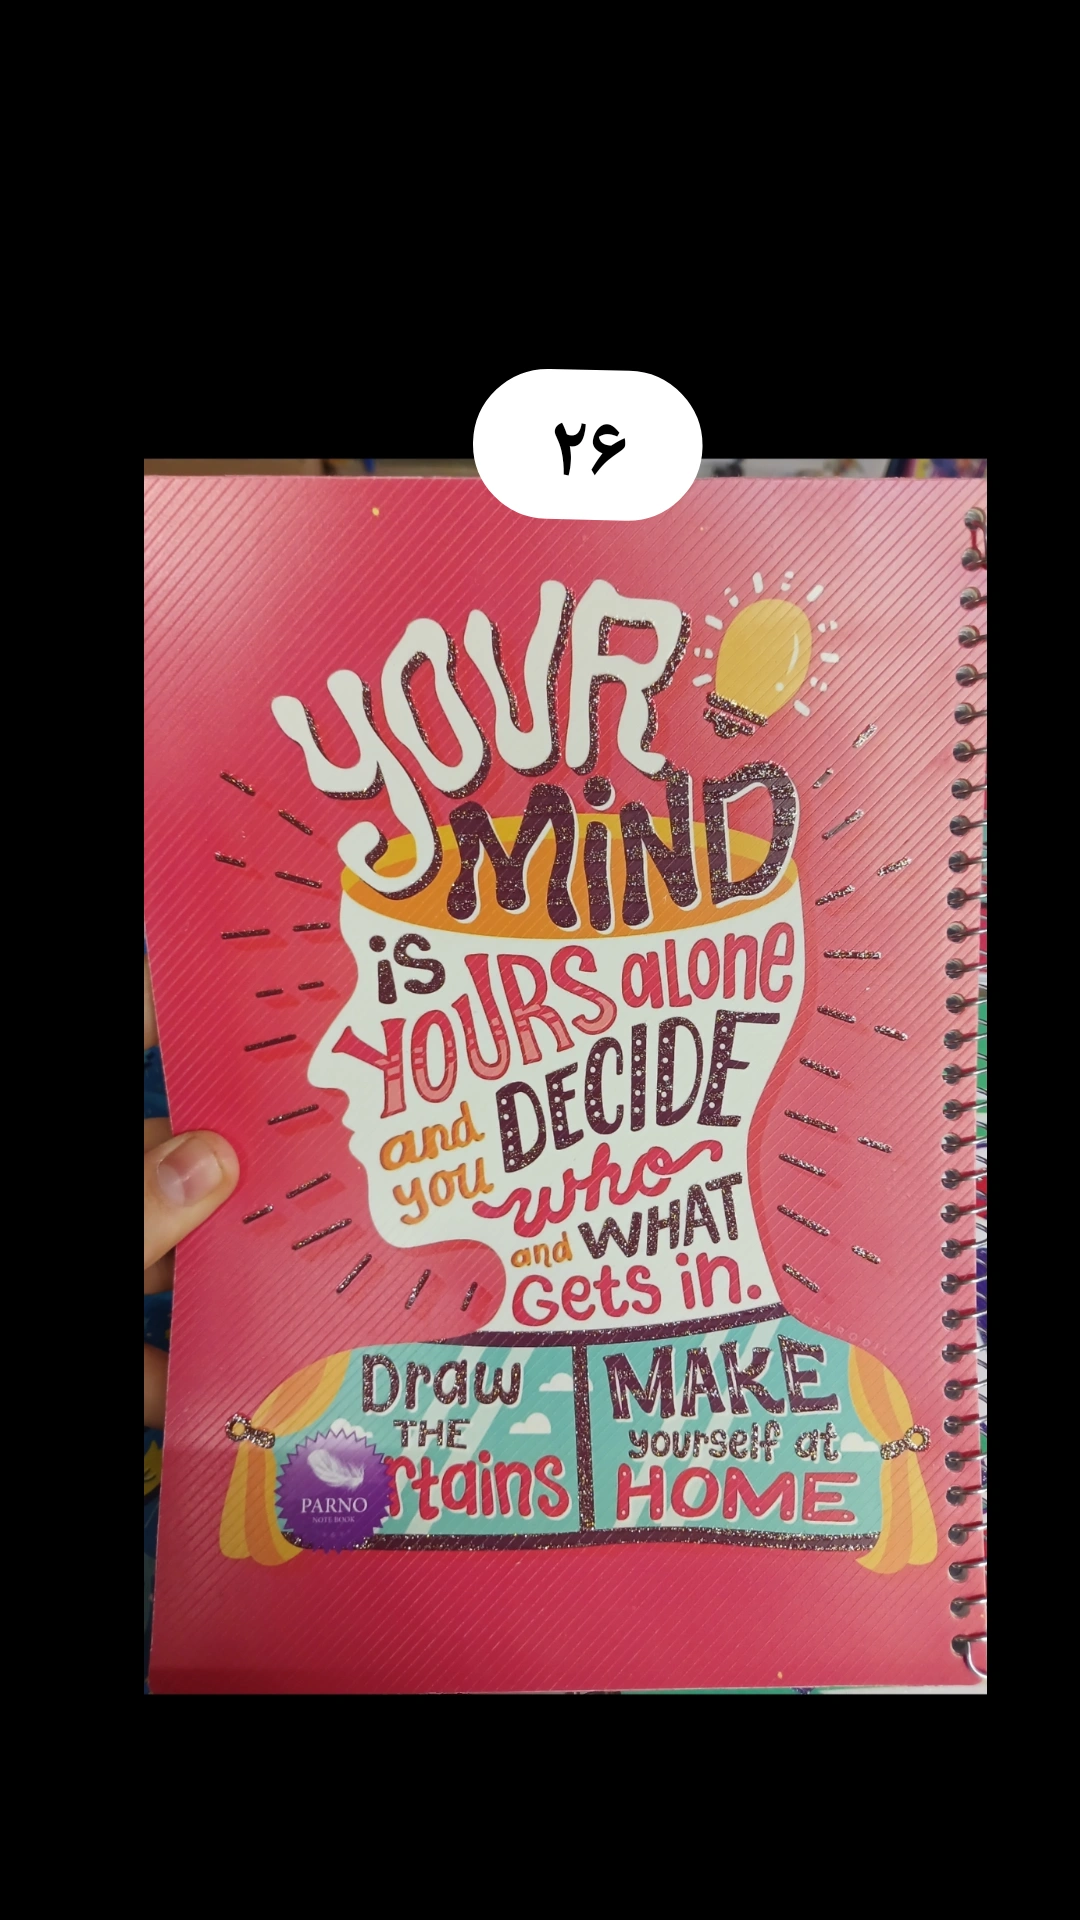 ۲۶
YOUR
MiND
is
YOURS alone
and DECIDE
you who
and WHAT
Gets in.
Draw
THE
rtains
MAKE
yourself at
HOME
PARNO
NOTE BOOK